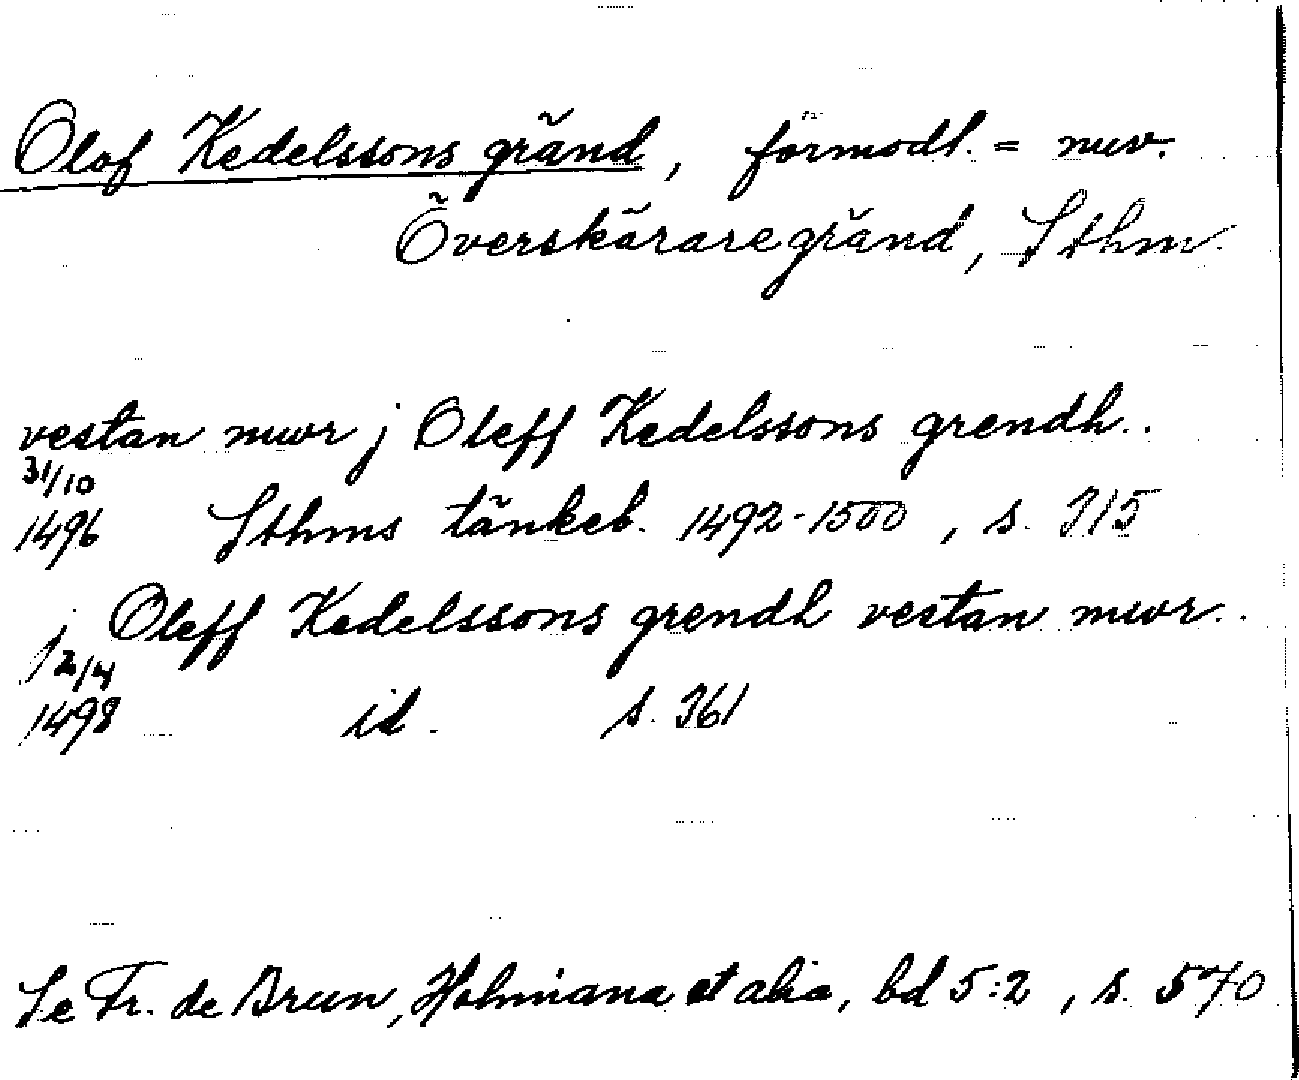 Olof Kedelssons gränd, förmodl. = nuv.
Överskäraregränd, Sthm.
vestan mwr j Oleff Kedelssons grendh..
31/10
1496 Sthms tänkeb. 1492-1500, s. 315
j Oleff Kedelssons grendh vestan mwr..
2/4
1498 id. s. 361
Se Fr. de Brun, Holmiana et alia, bd 5:2, s. 570